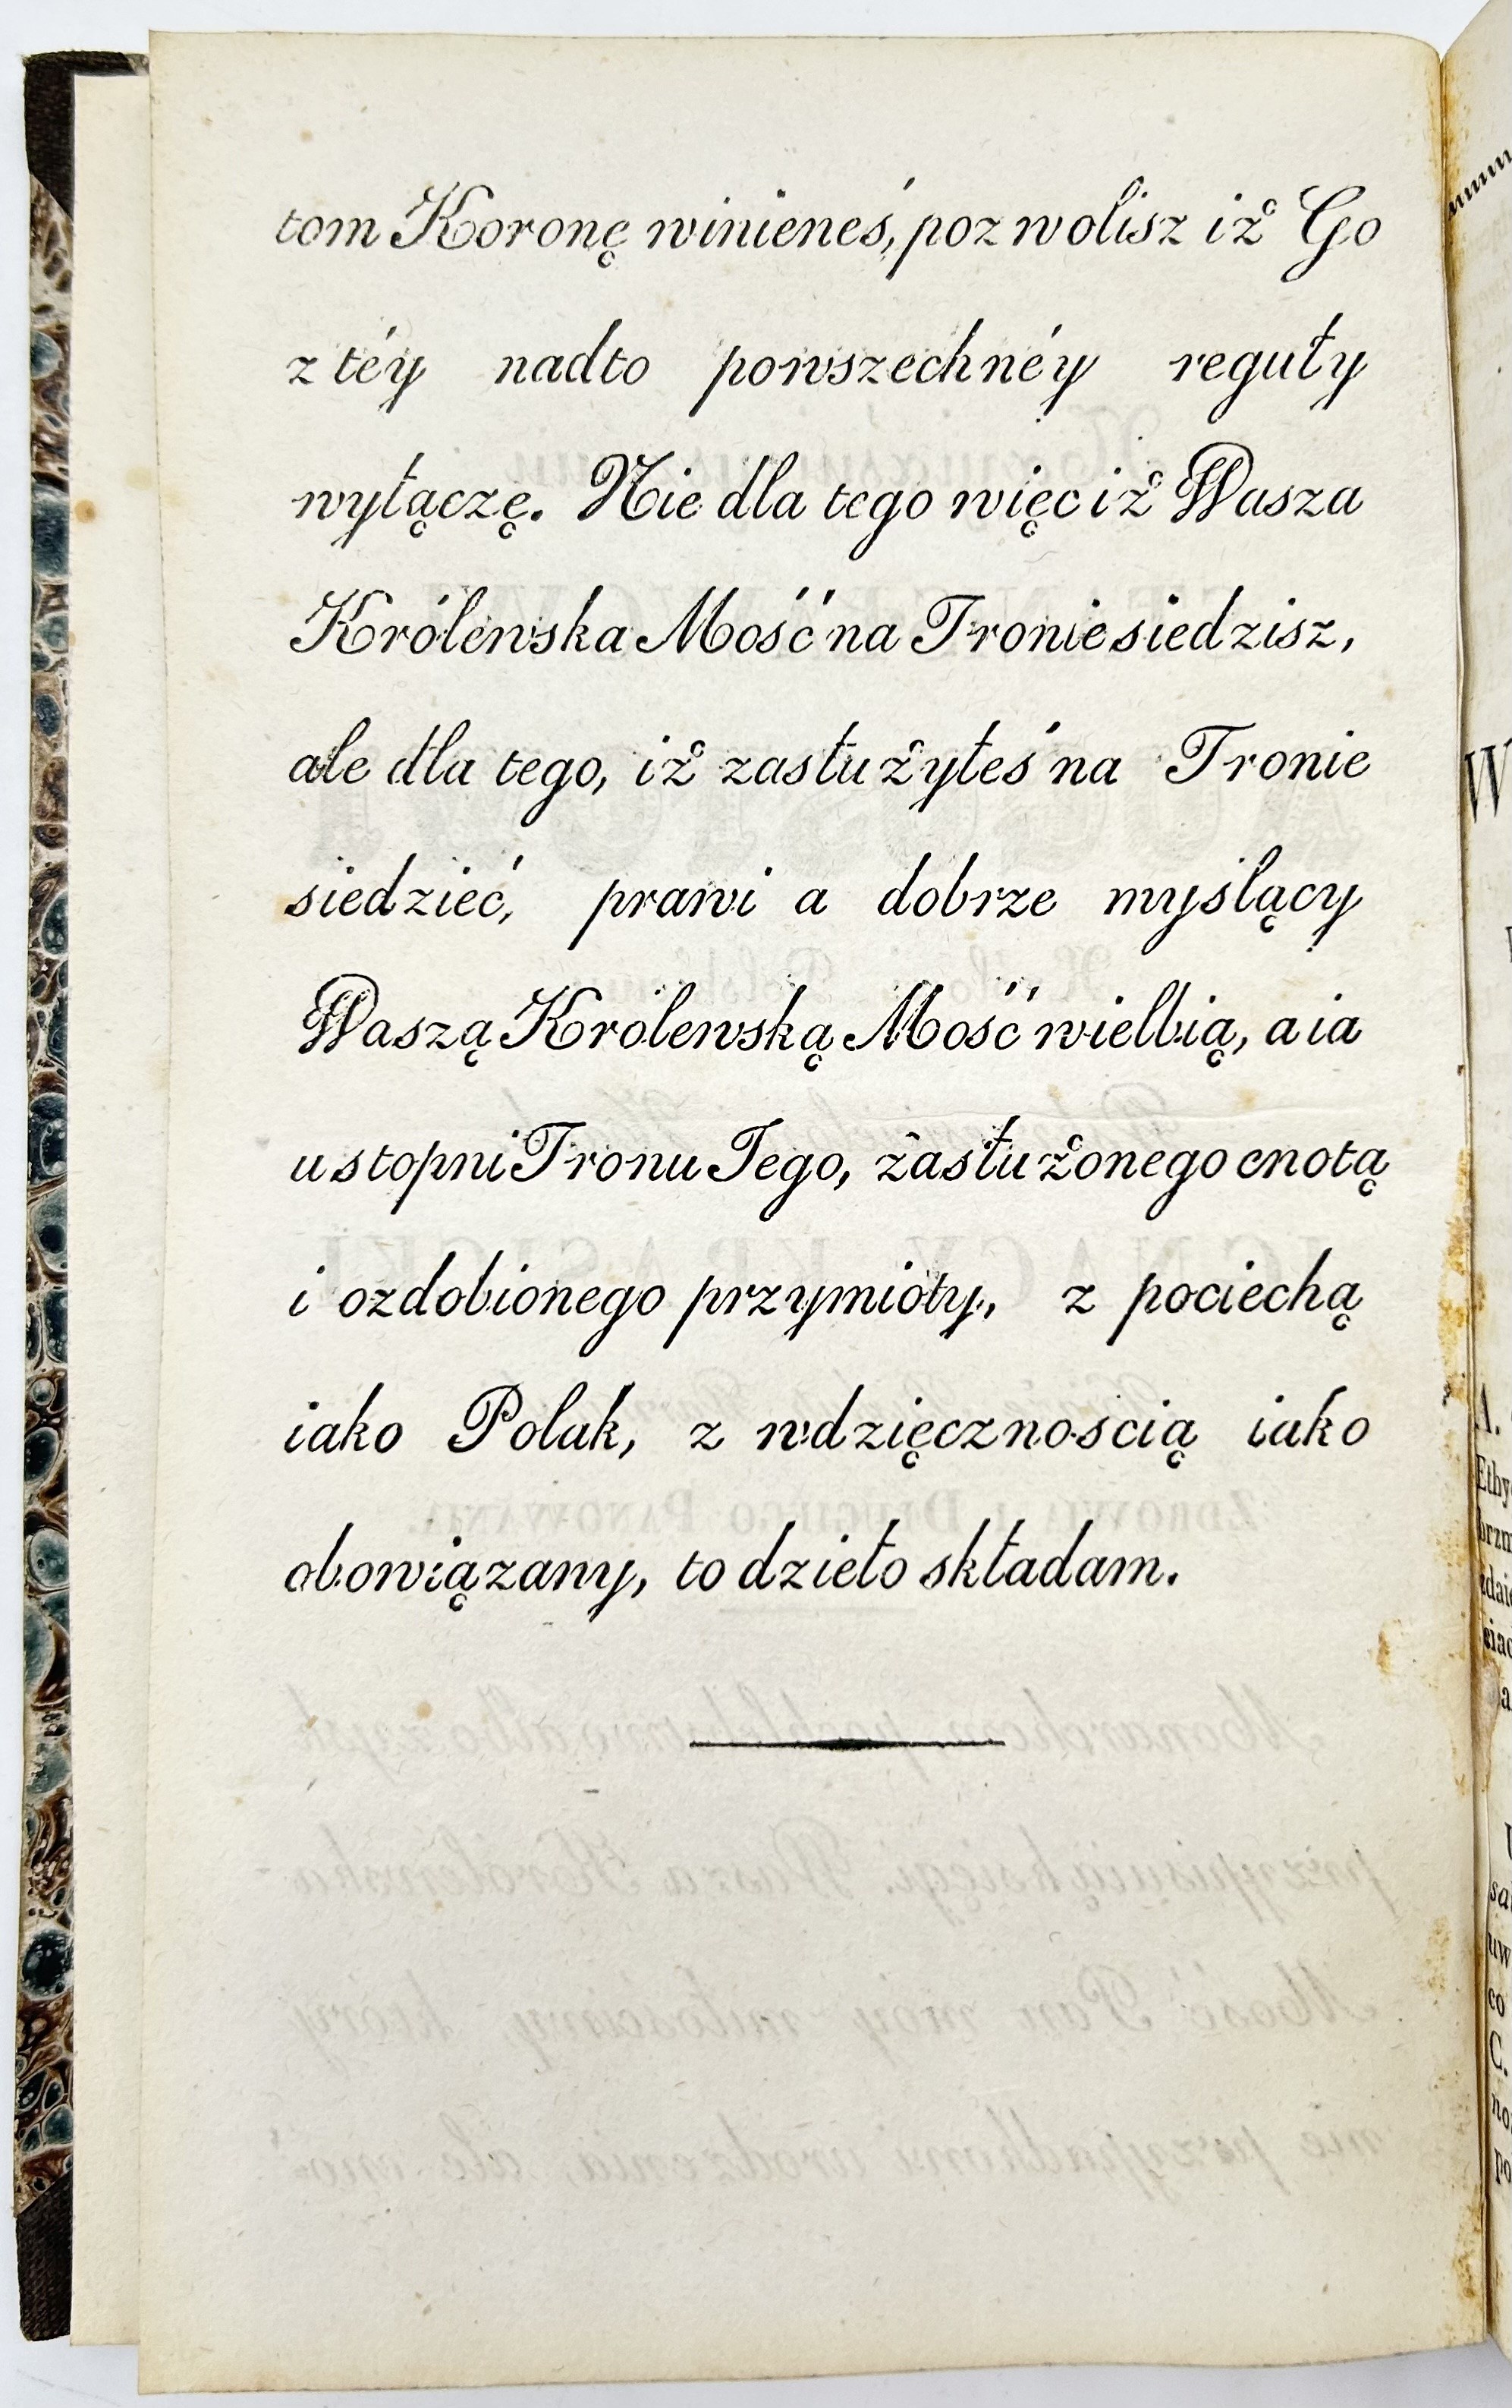 tom Koronę winieneś, pozwolisz iż Go
z téy nadto powszechnéy reguły
wyłączę. Nie dla tego więc iż Wasza
Królewska Mość na Tronie siedzisz,
ale dla tego, iż zasłużyłeś na Tronie
siedzieć, prawi a dobrze myślący
Waszą Królewską Mość wielbią, a ia
u stopni Tronu Jego, zasłużonego cnotą
i ozdobionego przymioty, z pociechą
iako Polak, z wdzięcznoscią iako
obowiązany, to dzieło składam.